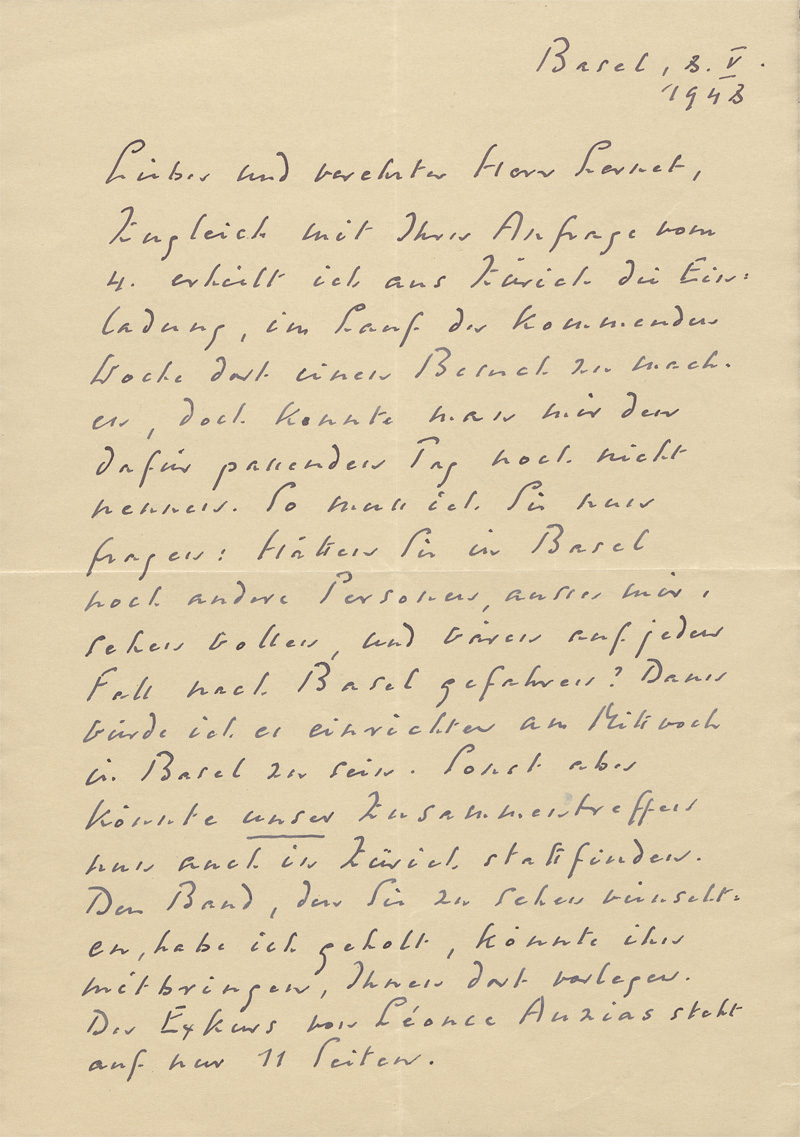 Basel, 8. V.
1948
Lieber und verehrter Herr Lernet,
Zugleich mit Ihrer Anfrage vom
4. erhielt ich aus Zürich die Ein=
ladung, im Lauf der kommenden
Woche dort einen Besuch zu mach-
en, doch konnte man mir den
dafür passenden Tag noch nicht
nennen. So muss ich Sie nun
fragen: Hätten Sie in Basel
noch andere Personen, ausser mir,
sehen wollen, und wären auf jeden
Fall nach Basel gefahren? Dann
würde ich es einrichten am Mittwoch
in Basel zu sein. Sonst aber
könnte unser Zusammentreffen
nun auch in Zürich stattfinden.
Den Band, den Sie zu sehen wünscht-
en, habe ich geholt, könnte ihn
mitbringen, Ihnen dort vorlegen.
Der Exkurs von Léonce Auzias steht
auf nur 11 Seiten.